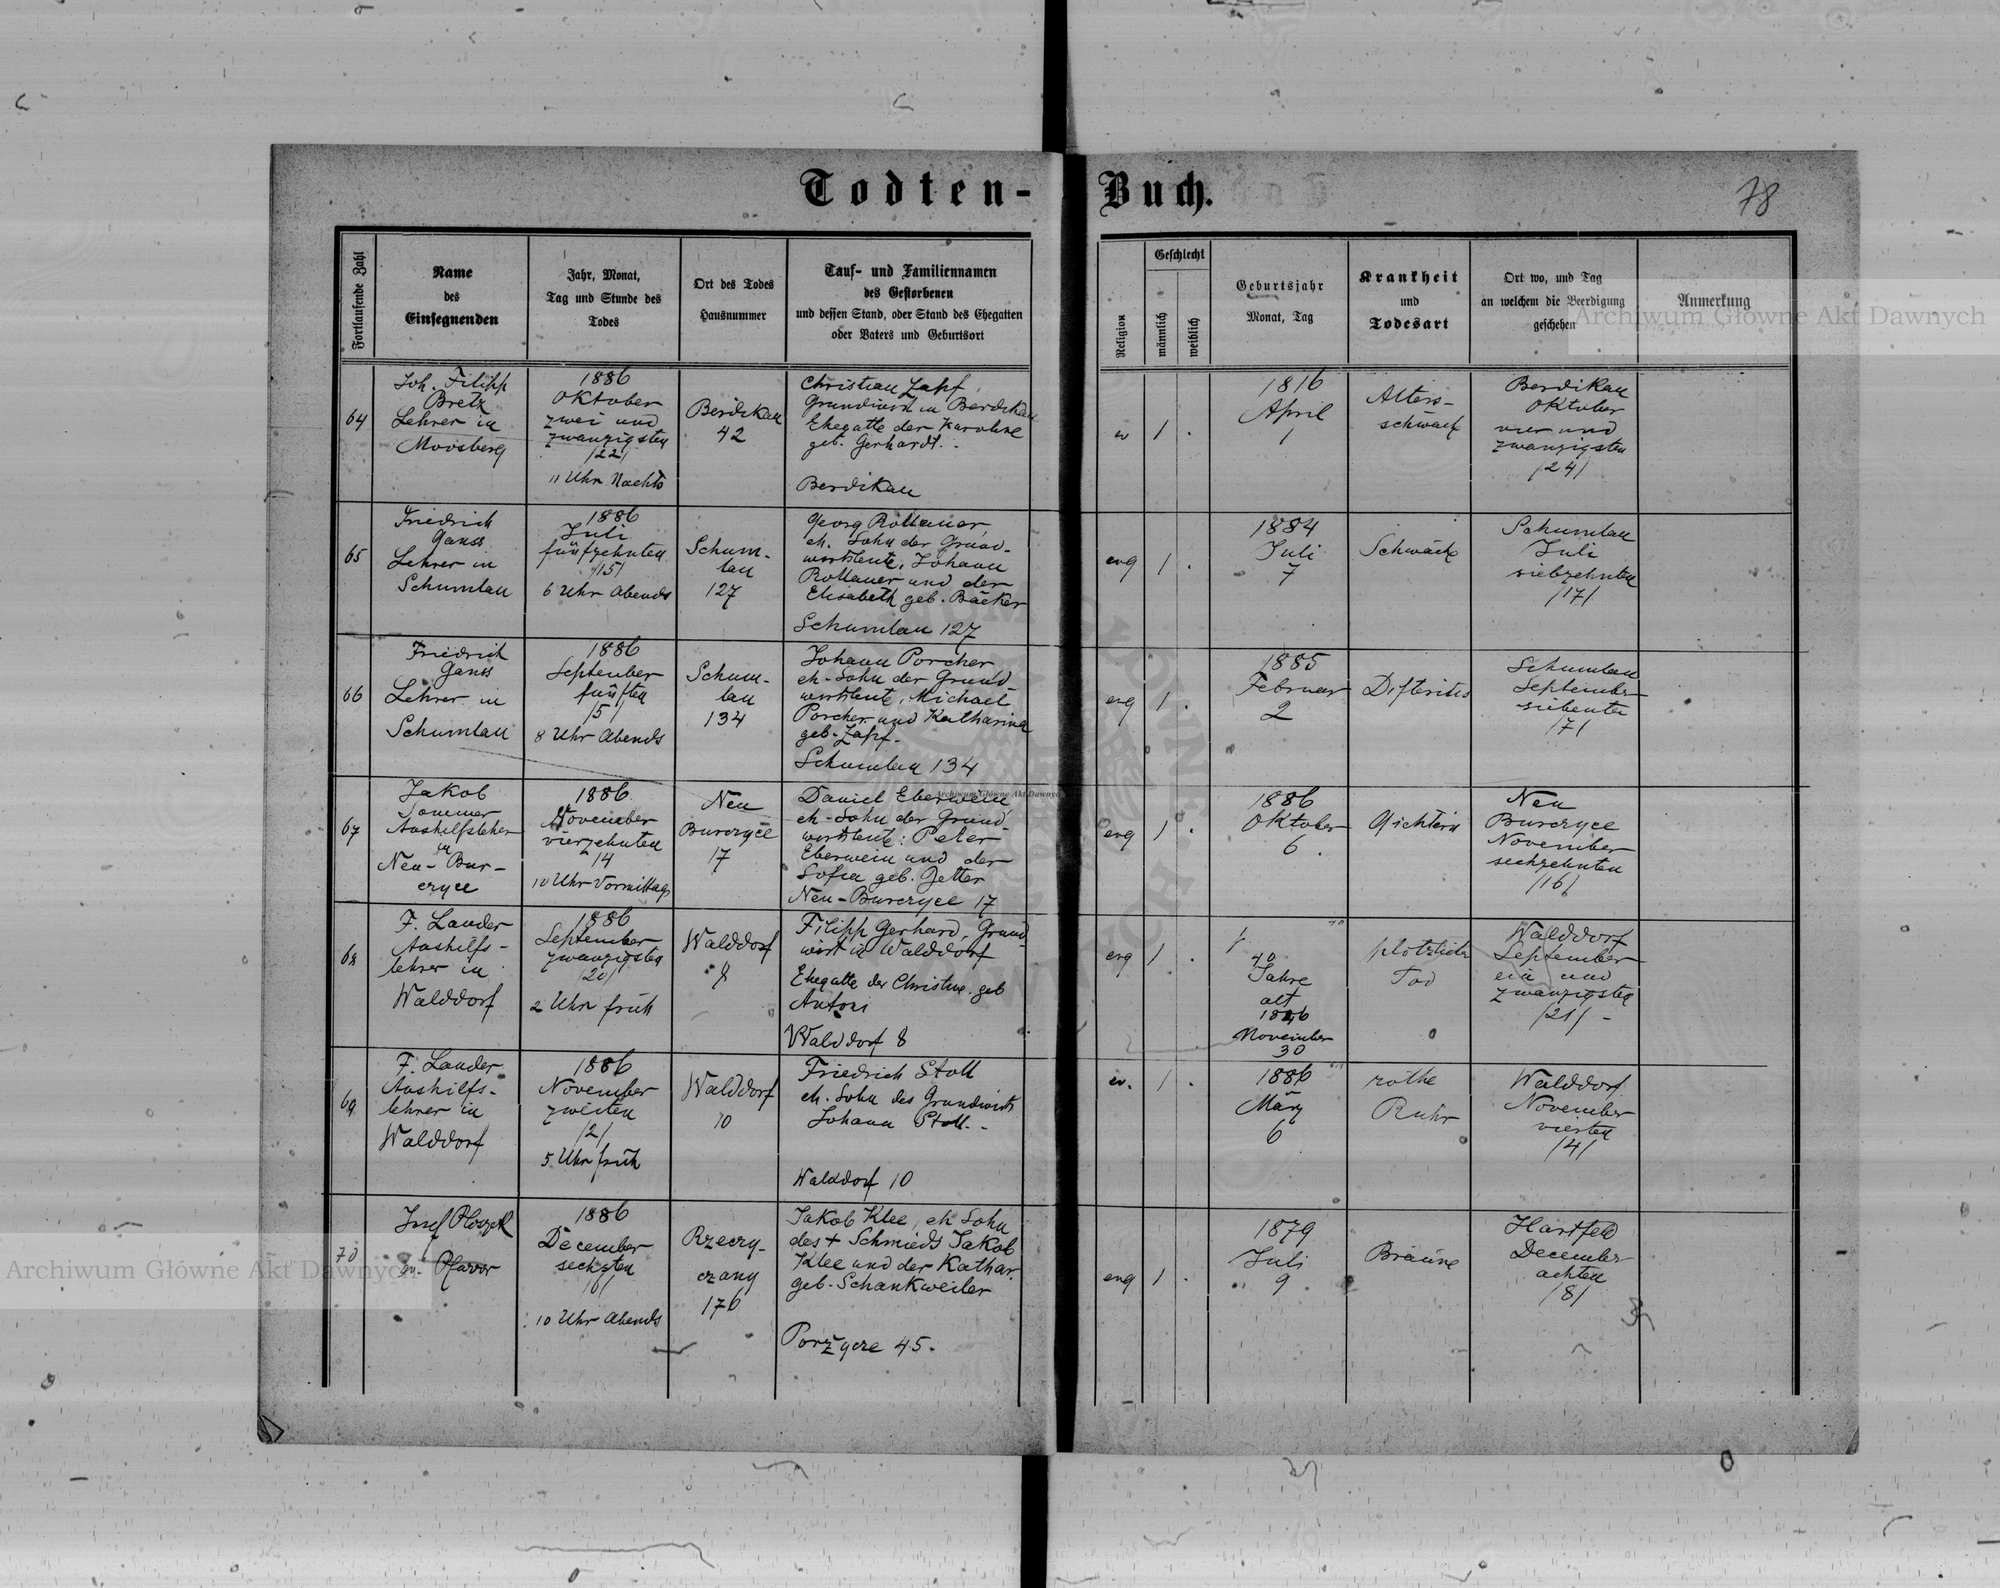 Todten-Buch.
78
Fortlaufende Zahl
Name
des
Einsegnenden
Jahr, Monat,
Tag und Stunde des
Todes
Ort des Todes
Hausnummer
Tauf- und Familiennamen
des Gestorbenen
und dessen Stand, oder Stand des Ehegatten
oder Vaters und Geburtsort
Religion
Geschlecht
männlich
weiblich
Geburtsjahr
Monat, Tag
Krankheit
und
Todesart
Ort wo, und Tag
an welchem die Beerdigung
geschehen
Anmerkung
64
Joh. Filipp
Bretz
Lehrer in
Moosberg
1886
Oktober
zwei und
zwanzigsten
/22/
11 Uhr Nachts
Berdikau
42
Christian Zapf,
Grundwirt in Berdikau
Ehegatte der Karoline
geb. Gerhardt.
Berdikau
ev
1
.
1816
April
1
Alters-
schwäche
Berdikau
Oktober
vier und
zwanzigsten
/24/
65
Friedrich
Ganss
Lehrer in
Schumlau
1886
Juli
fünfzehnten
/15/
6 Uhr Abends
Schum-
lau
127
Georg Rollauer
eh. Sohn der Grund-
wirtsleute, Johann
Rollauer und der
Elisabeth geb. Bäcker
Schumlau 127
evg
1
.
1884
Juli
7
Schwäche
Schumlau
Juli
siebzehnten
/17/
66
Friedrich
Ganss
Lehrer in
Schumlau
1886
September
fünften
/5/
8 Uhr Abends
Schum-
lau
134
Johann Porcher
eh. Sohn der Grund-
wirtsleute, Michael
Porcher und Katharina
geb. Zapf.
Schumlau 134
evg
1
.
1885
Februar
2
Difteritis
Schumlau
September
siebenten
/7/
67
Jakob
Sommer
Aushilfslehrer
in
Neu-Bur-
czyce
1886
November
vierzehnten
14
10 Uhr Vormittags
Neu
Burczyce
17
Daniel Eberwein
eh. Sohn der Grund-
wirtsleute: Peter
Eberwein und der
Sofia geb. Jetter
Neu-Burczyce 17
evg
1
.
1886
Oktober
6.
Gichtern
Neu
Burczyce
November
sechzehnten
/16/
68
F. Lander
Aushilfs-
lehrer in
Walddorf
1886
September
zwanzigsten
/20/
2 Uhr früh
Walddorf
8
Filipp Gerhard, Grund-
wirt in Walddorf
Ehegatte der Christine geb
Antoni
Walddorf 8
evg
1
.
40
Jahre
alt
1846
November
30
plötzlicher
Tod
Walddorf
September
ein und
zwanzigsten
/21/
69
F. Lander
Aushilfs-
lehrer in
Walddorf
1886
November
zweiten
/2/
5 Uhr früh
Walddorf
10
Friedrich Stoll
eh. Sohn des Grundwirts
Johann Stoll.
Walddorf 10
ev.
1
.
1886
März
6
rothe
Ruhr
Walddorf
November
vierten
/4/
70
Josef
ev. Pfarrer
1886
December
sechsten
/6/
10 Uhr Abends
Rzeczy-
czany
176
Jakob Klee, eh Sohn
des + Schmieds Jakob
Klee und der Kathar.
geb. Schankweiler
45.
evg
1
.
1879
Juli
9
Bräune
Hartfeld
December
achten
/8/
Archiwum Główne Akt Dawnych
Archiwum Główne Akt Dawnych
Archiwum Główne Akt Dawnych